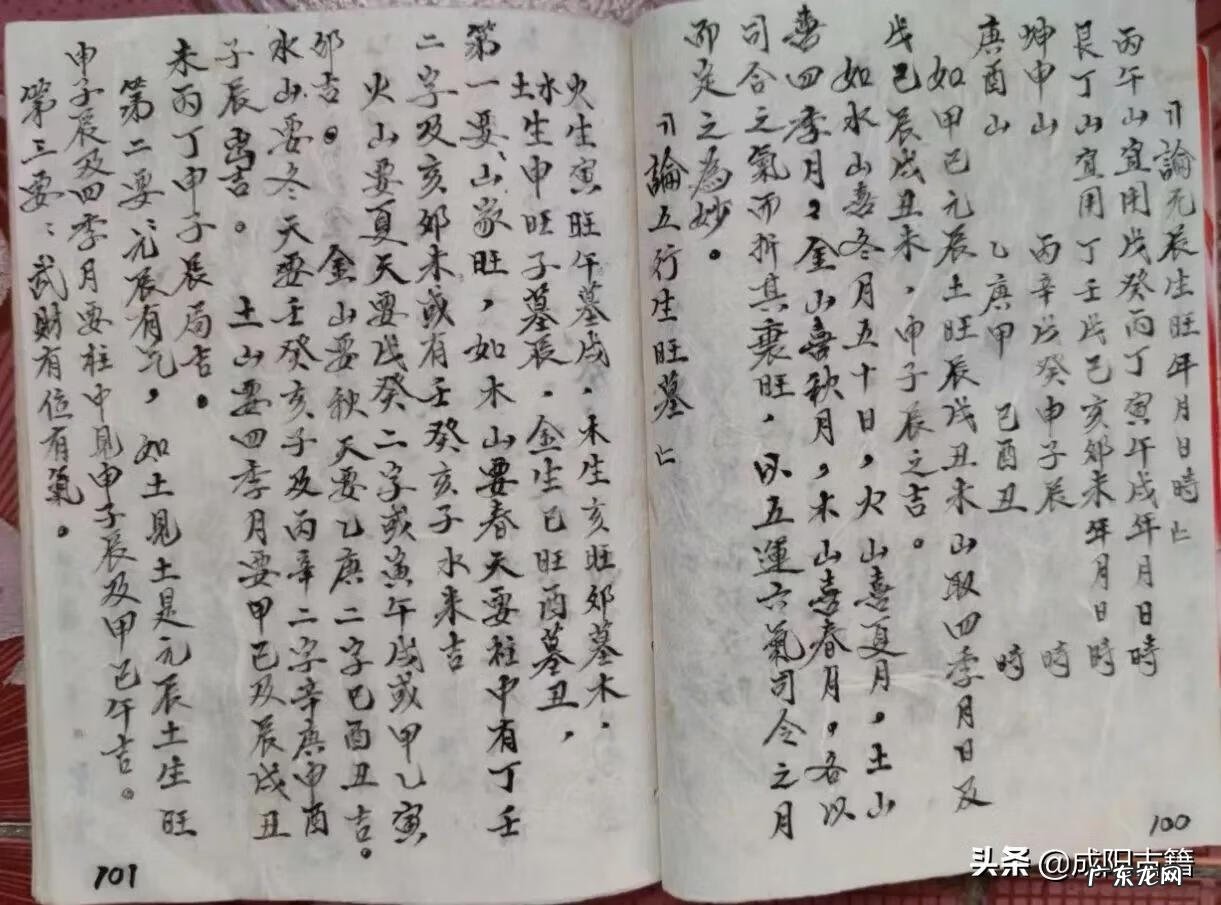 論元辰生旺年月日時
丙午山宜用戊癸丙丁寅午戌年月日時
艮丁山宜用丁壬戊己亥卯未年月日時
坤申山 丙辛戊癸申子辰 時
庚酉山 乙庚甲 己酉丑 時
如甲己元辰土旺辰戌丑未山取四季月日及
戊己辰戌丑未，申子辰之吉。
如水山喜冬月五十日，火山喜夏月。土山
喜四季月，金山喜秋月，木山喜春月。各以
司合之氣而折其衰旺，以五運六氣司令之月
而定之為妙。
論五行生旺墓
100
火生寅旺午墓戌．木生亥旺卯墓木．
水土生申旺子墓辰．金生巳旺酉墓丑，
第一要、山家旺，如木山要春天要柱中有丁壬
二字及亥卯未或有壬癸亥子水来吉
火山要夏天要戊癸二字或寅午戌或甲乙寅
卯吉。 金山要秋天要乙庚二字巳酉丑吉。
水山要冬天要壬癸亥子及丙辛二字辛庚申酉
子辰吉。 土山要四季月要甲己及辰戌丑
未丙丁申子辰局吉。
第二要：元辰有气，如土見土是元辰土生旺
申子辰及四季月要柱中見申子辰及甲己午吉。
第三要：武財有位有氣。
101
头条 @成阳古籍
广东龙网